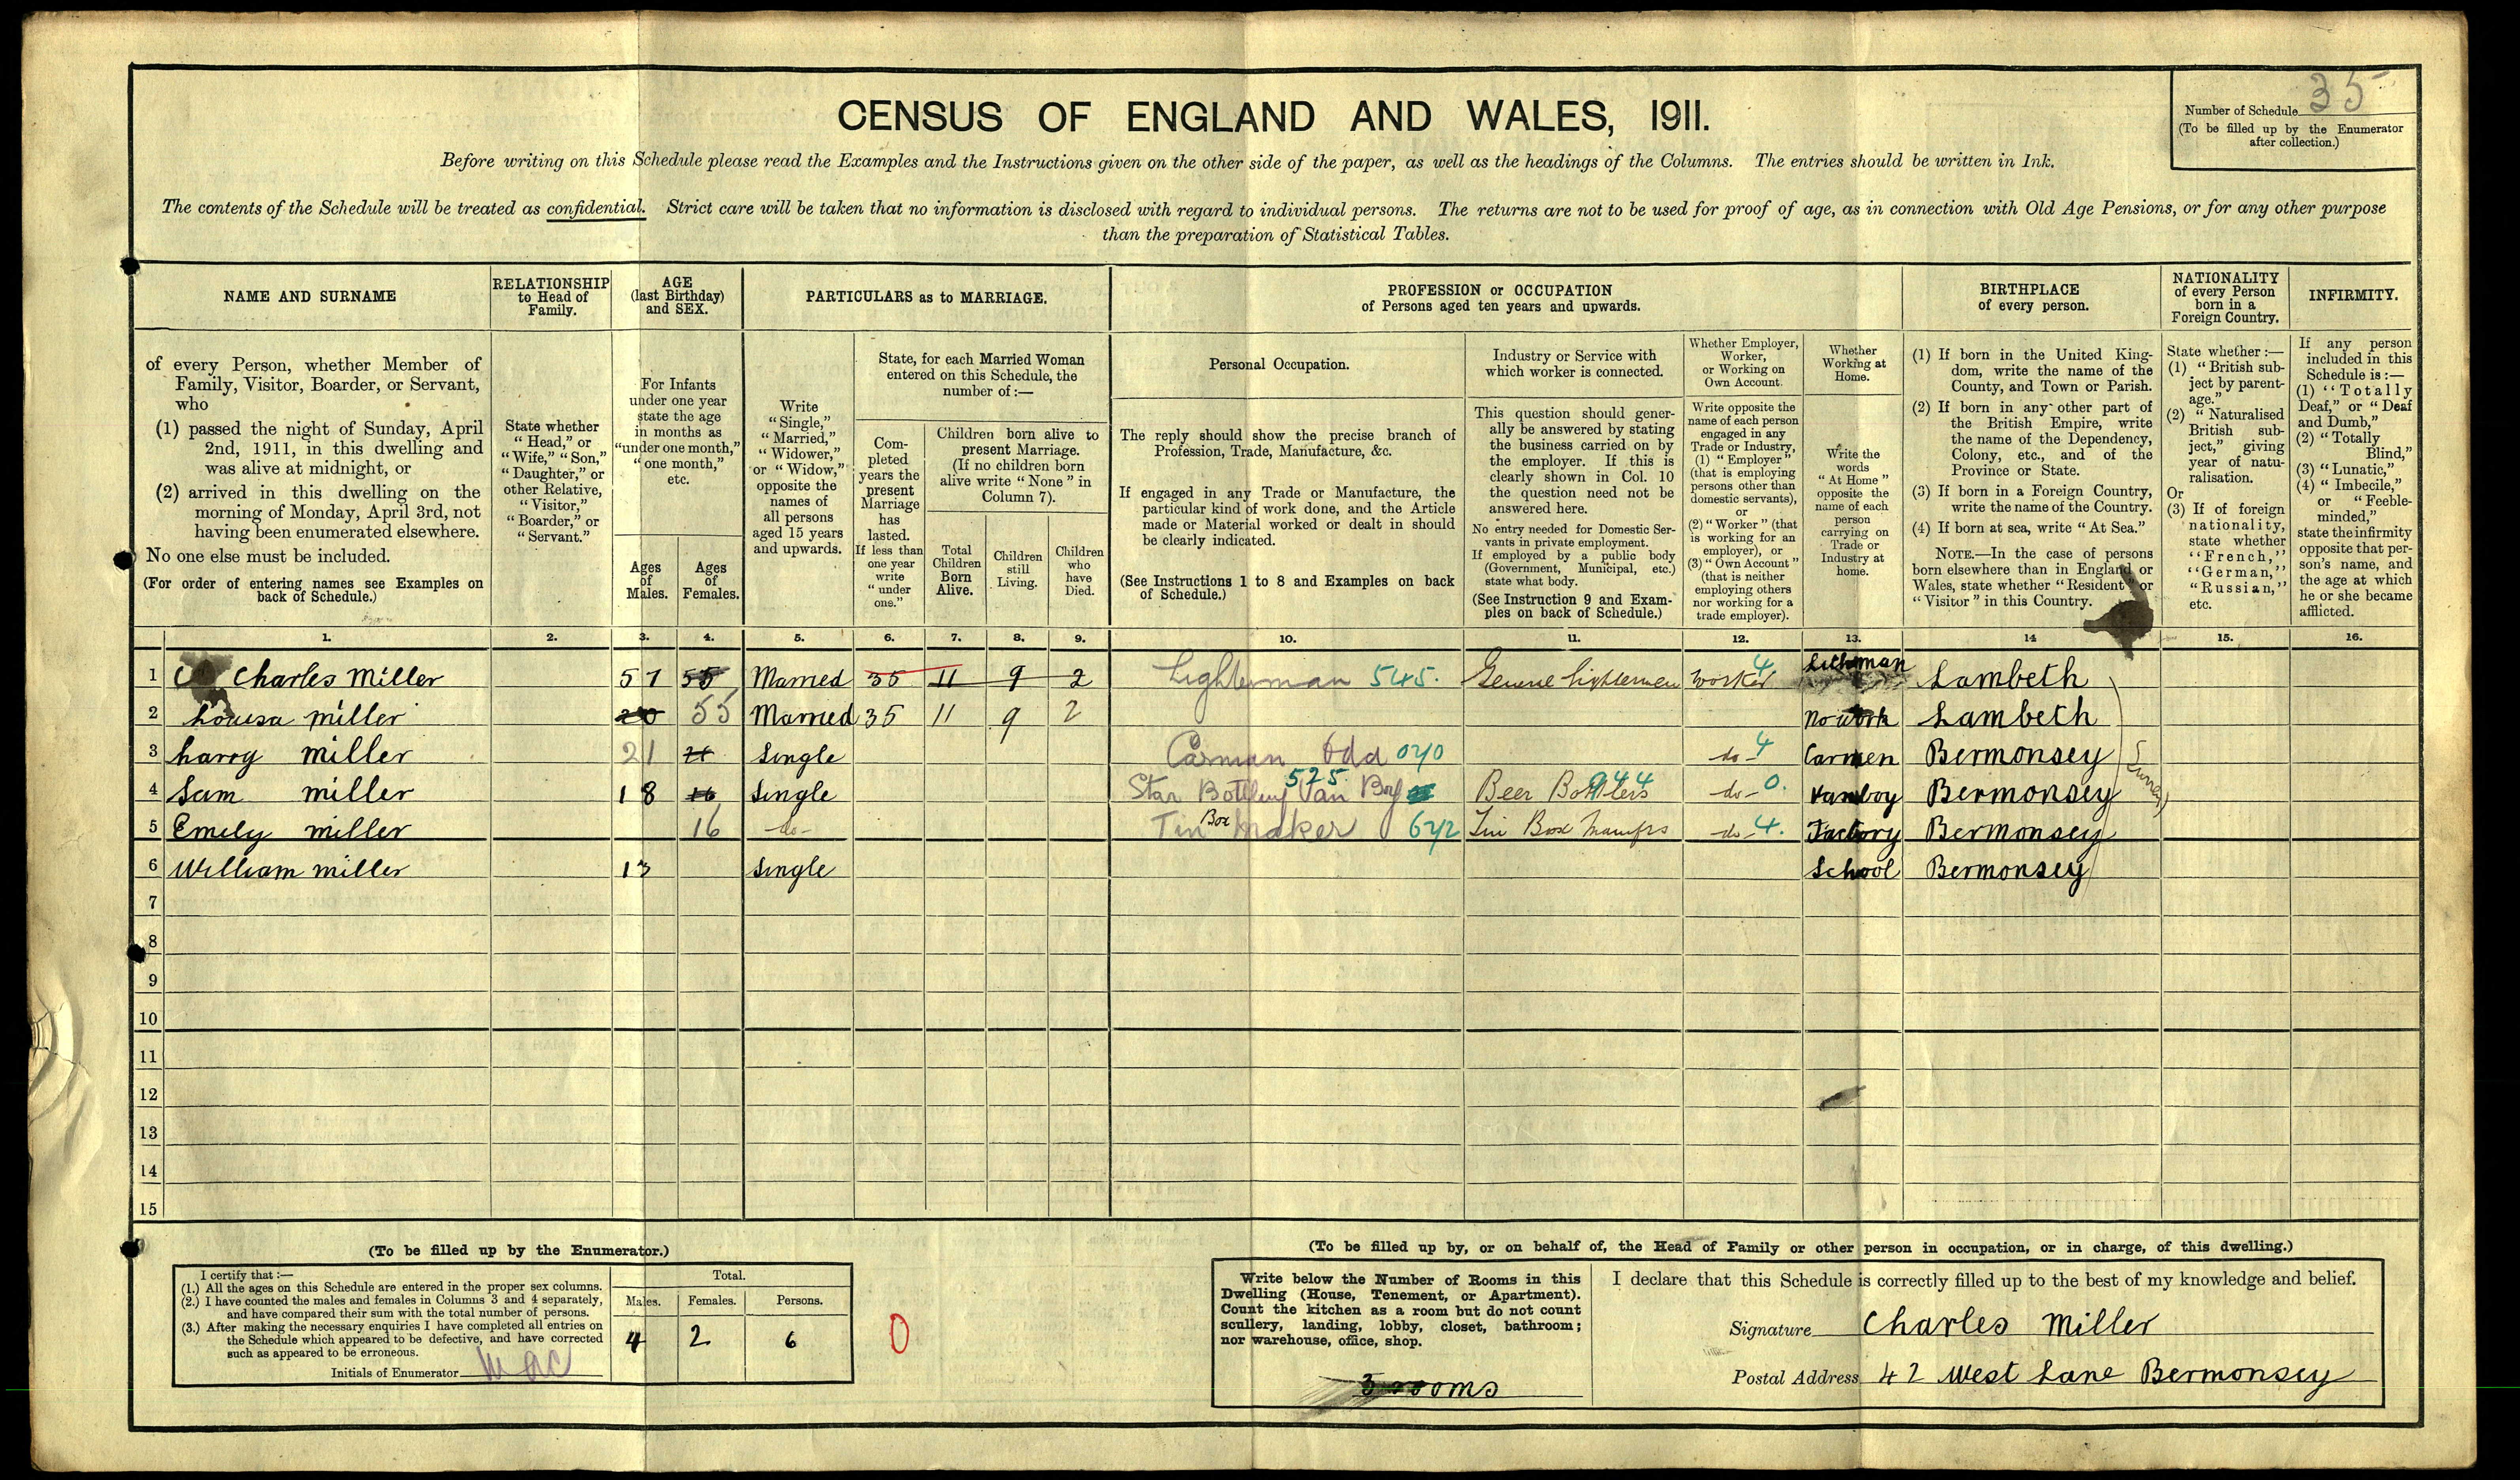 Number of Schedule 35
(To be filled up by the Enumerator
after collection.)
CENSUS OF ENGLAND AND WALES, 1911.
Before writing on this Schedule please read the Examples and the Instructions given on the other side of the paper, as well as the headings of the Columns. The entries should be written in Ink.
The contents of the Schedule will be treated as confidential. Strict care will be taken that no information is disclosed with regard to individual persons. The returns are not to be used for proof of age, as in connection with Old Age Pensions, or for any other purpose
than the preparation of Statistical Tables.
NAME AND SURNAME
of every Person, whether Member of
Family, Visitor, Boarder, or Servant,
who
(1) passed the night of Sunday, April
2nd, 1911, in this dwelling and
was alive at midnight, or
(2) arrived in this dwelling on the
morning of Monday, April 3rd, not
having been enumerated elsewhere.
No one else must be included.
(For order of entering names see Examples on
back of Schedule.)
RELATIONSHIP
to Head of
Family.
State whether
"Head," or
"Wife," "Son,"
"Daughter," or
other Relative,
"Visitor,"
"Boarder," or
"Servant."
AGE
(last Birthday)
and SEX.
For Infants
under one year
state the age
in months as
"under one month,"
"one month,"
etc.
Ages
of
Males.
Ages
of
Females.
PARTICULARS as to MARRIAGE.
Write
"Single,"
"Married,"
"Widower,"
or "Widow,"
opposite the
names of
all persons
aged 15 years
and upwards.
State, for each Married Woman
entered on this Schedule, the
number of:—
Com-
pleted
years the
present
Marriage
has
lasted.
If less than
one year
write
"under
one."
Children born alive to
present Marriage.
(If no children born
alive write "None" in
Column 7).
Total
Children
Born
Alive.
Children
still
Living.
Children
who
have
Died.
PROFESSION or OCCUPATION
of Persons aged ten years and upwards.
Personal Occupation.
The reply should show the precise branch of
Profession, Trade, Manufacture, &c.
If engaged in any Trade or Manufacture, the
particular kind of work done, and the Article
made or Material worked or dealt in should
be clearly indicated.
(See Instructions 1 to 8 and Examples on back
of Schedule.)
Industry or Service with
which worker is connected.
This question should gener-
ally be answered by stating
the business carried on by
the employer. If this is
clearly shown in Col. 10
the question need not be
answered here.
No entry needed for Domestic Ser-
vants in private employment.
If employed by a public body
(Government, Municipal, etc.)
state what body.
(See Instruction 9 and Exam-
ples on back of Schedule.)
Whether Employer,
Worker,
or Working on
Own Account.
Write opposite the
name of each person
engaged in any
Trade or Industry,
(1) "Employer"
(that is employing
persons other than
domestic servants),
or
(2) "Worker" (that
is working for an
employer), or
(3) "Own Account"
(that is neither
employing others
nor working for a
trade employer).
Whether
Working at
Home.
Write the
words
"At Home"
opposite the
name of each
person
carrying on
Trade or
Industry at
home.
BIRTHPLACE
of every person.
(1) If born in the United King-
dom, write the name of the
County, and Town or Parish.
(2) If born in any other part of
the British Empire, write
the name of the Dependency,
Colony, etc., and of the
Province or State.
(3) If born in a Foreign Country,
write the name of the Country.
(4) If born at sea, write "At Sea."
NOTE.—In the case of persons
born elsewhere than in England or
Wales, state whether "Resident" or
"Visitor" in this Country.
NATIONALITY
of every Person
born in a
Foreign Country.
State whether:—
(1) "British sub-
ject by parent-
age."
(2) "Naturalised
British sub-
ject," giving
year of natu-
ralisation.
Or
(3) If of foreign
nationality,
state whether
"French,"
"German,"
"Russian,"
etc.
INFIRMITY.
If any person
included in this
Schedule is:—
(1) "Totally
Deaf," or "Deaf
and Dumb,"
(2) "Totally
Blind,"
(3) "Lunatic,"
(4) "Imbecile,"
or "Feeble-
minded,"
state the infirmity
opposite that per-
son's name, and
the age at which
he or she became
afflicted.
1. 2. 3. 4. 5. 6. 7. 8. 9. 10. 11. 12. 13. 14 15. 16.
1 Charles Miller 57 55 Married 35 11 9 2 Lighterman 545. General Lightermen Worker 4 Lambeth
2 Louisa miller 55 Married 35 11 9 2 No work Lambeth
3 harry miller 21 21 Single Carman Odd 040 do 4 Carmen Bermonsey
4 Sam miller 18 16 Single Star Bottling Van Boy 525 Beer Bottlers 944 do 0. Vanboy Bermonsey
5 Emily miller 16 do Tin Box Maker 642 Tin Box Manufrs do 4. Factory Bermonsey
6 William miller 13 Single School Bermonsey
Surrey
7
8
9
10
11
12
13
14
15
(To be filled up by the Enumerator.)
I certify that:—
(1.) All the ages on this Schedule are entered in the proper sex columns.
(2.) I have counted the males and females in Columns 3 and 4 separately,
and have compared their sum with the total number of persons.
(3.) After making the necessary enquiries I have completed all entries on
the Schedule which appeared to be defective, and have corrected
such as appeared to be erroneous.
Initials of Enumerator mac
Total.
Males. Females. Persons.
4 2 6
0
(To be filled up by, or on behalf of, the Head of Family or other person in occupation, or in charge, of this dwelling.)
Write below the Number of Rooms in this
Dwelling (House, Tenement, or Apartment).
Count the kitchen as a room but do not count
scullery, landing, lobby, closet, bathroom;
nor warehouse, office, shop.
3 rooms
I declare that this Schedule is correctly filled up to the best of my knowledge and belief.
Signature Charles Miller
Postal Address 42 West Lane Bermonsey